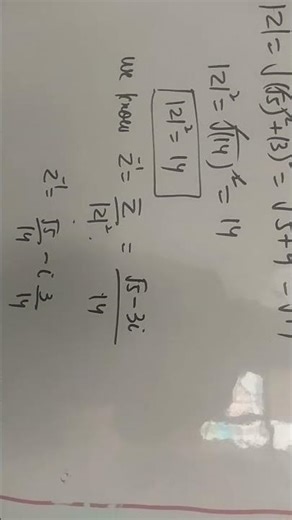 |z| = √(√5)² + (3)² = √5+9 = √1
|z|² = (√14)² = 14
|z|² = 14
we know z⁻¹ = z̅/|z|² = (√5 - 3i)/14
z⁻¹ = √5/14 - i 3/14